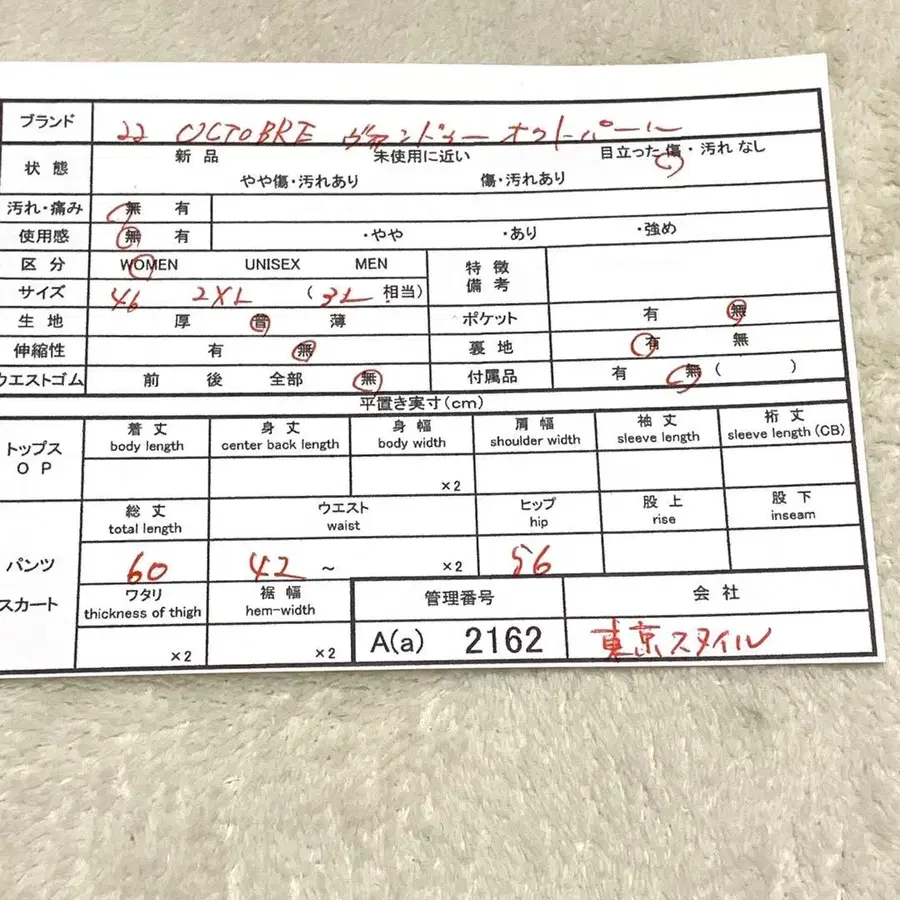 ブランド 22 OCTOBRE ヴァンドゥー オクトーブル
状態 新品 未使用に近い 目立った傷・汚れなし
やや傷・汚れあり 傷・汚れあり
汚れ・痛み 無 有
使用感 無 有 ・やや ・あり ・強め
区分 WOMEN UNISEX MEN 特徴備考
サイズ 46 2XL (3L 相当)
生地 厚 普 薄 ポケット 有 無
伸縮性 有 無 裏地 有 無
ウエストゴム 前 後 全部 無 付属品 有 無 ( )
平置き実寸(cm)
トップス OP 着丈 身丈 身幅 肩幅 袖丈 裄丈
body length center back length body width shoulder width sleeve length sleeve length (CB)
×2
総丈 ウエスト ヒップ 股上 股下
total length waist hip rise inseam
パンツ 60 42 ~ ×2 56
スカート ワタリ 裾幅 管理番号 会社
thickness of thigh hem-width
×2 ×2 A(a) 2162 東京スタイル